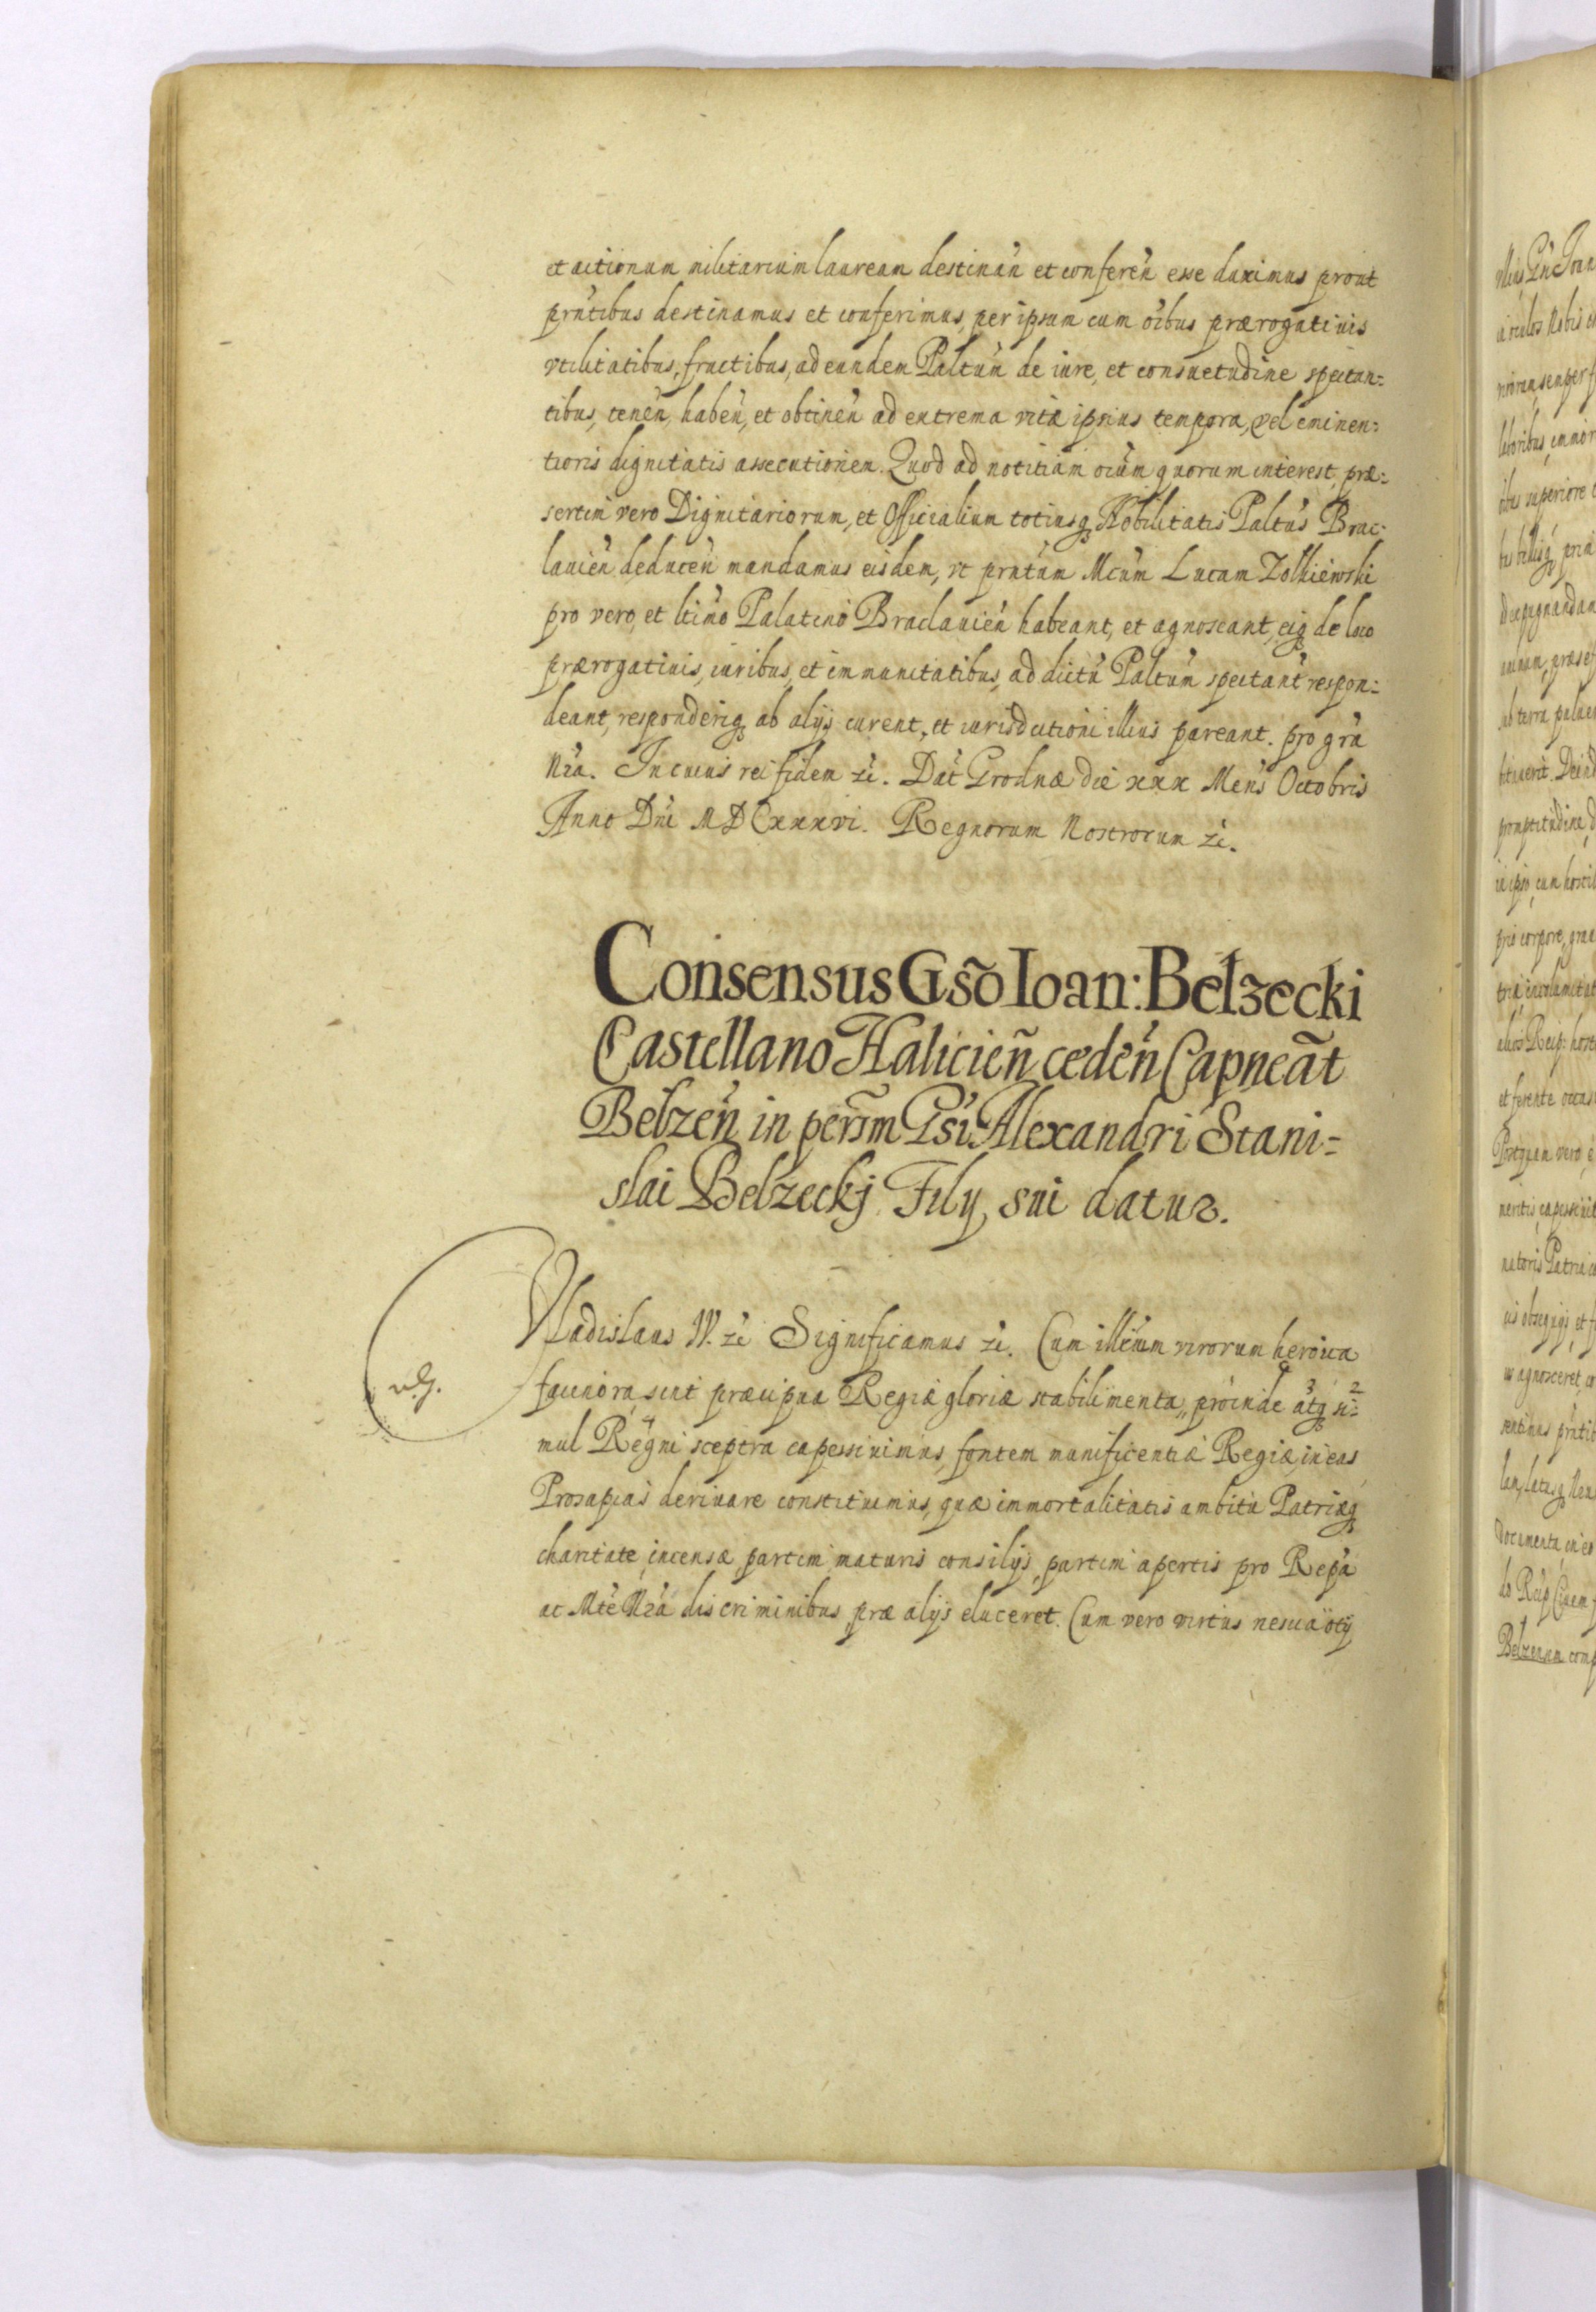 et actionum militarium lauream destinan̄ et conferen̄ esse duximus prout
pntibus destinamus et conferimus, per ipsum cum oībus prærogatiuis
vtilitatibus, fructibus, ad eundem Paltum̄ de iure, et consuetudine spectan=
tibus, tenen̄, haben̄, et obtinen̄ ad extrema vitæ ipsius tempora, vel eminen=
tioris dignitatis assecutionem. Quod ad notitiam oium̄ quorum interest, præ=
sertim vero Dignitariorum, et Officialium totiusq; Nobilitatis Paltus̄ Brac=
lauien̄ deducen̄ mandamus eisdem, vt pntum̄ Mcum̄ Lucam Zolkiewski
pro vero, et ltimo Palatino Braclauien̄ habeant, et agnoscant, eiq; de loco
prærogatiuis, iuribus, et immunitatibus, ad dictū Paltum̄ spectant̄ respon=
deant, responderiq; ab alijs curent, et iurisdictioni illius pareant. pro grā
Nrā. In cuius rei fidem zc̄. Dat̄ Grodnæ die xxx Mens̄ Octobris
Anno Dni MDCxxxvi. Regnorum Nostrorum zc̄.
Consensus Gsõ Ioan: Bełzecki
Castellano Halicien̄ ceden̄ Capneãt
Belzen̄ in persm̃ Gsi Alexandri Stani=
slai Bełzeckj Filÿ sui datur.
Vladislaus IV. zc̄ Significamus zc̄. Cum illr̄ium virorum heroica
facinora, sint præcipua Regiæ gloriæ stabilimenta, proinde atq; 3 si= 2
mul Regni 4 sceptra capessiuimus, fontem munificentiæ Regiæ, in eas
Prosapias deriuare constituimus, quæ immortalitatis ambitu Patriæq;
charitate incensæ, partim maturis consilijs, partim apertis pro Repā
ac Mtē Nrā discriminibus, præ alijs eluceret. Cum vero virtus nescia otij